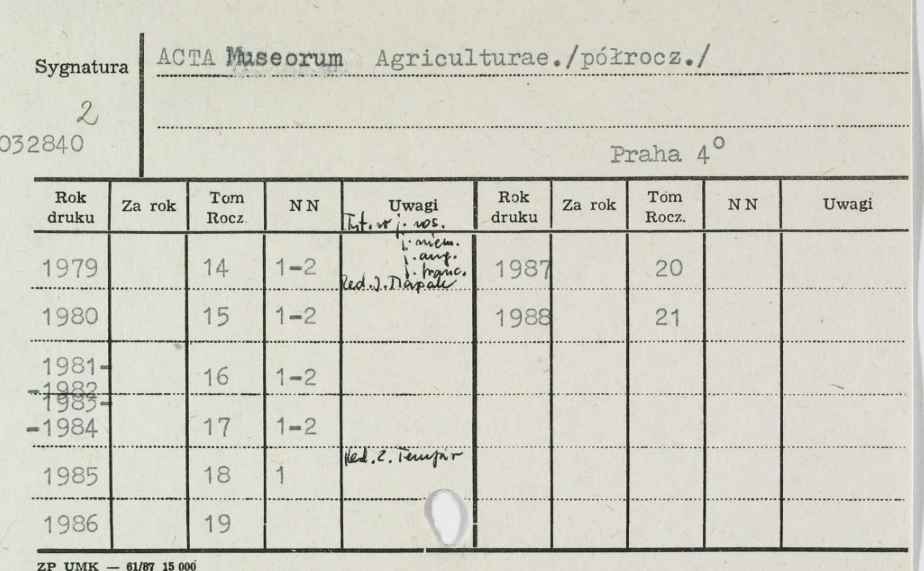 Sygnatura ACTA Museorum Agriculturae./półrocz./
2
032840
Praha 4°
Rok druku Za rok Tom Rocz. NN Uwagi Rok druku Za rok Tom Rocz. NN Uwagi
Tyt. w j. ros.
j. niem.
j. ang.
j. franc.
1979 14 1-2 Red. J. 1987 20
1980 15 1-2 1988 21
1981-
-1982 16 1-2
1983-
-1984 17 1-2
Red. Z. Tempír
1985 18 1
1986 19
ZP UMK — 61/87 15 000